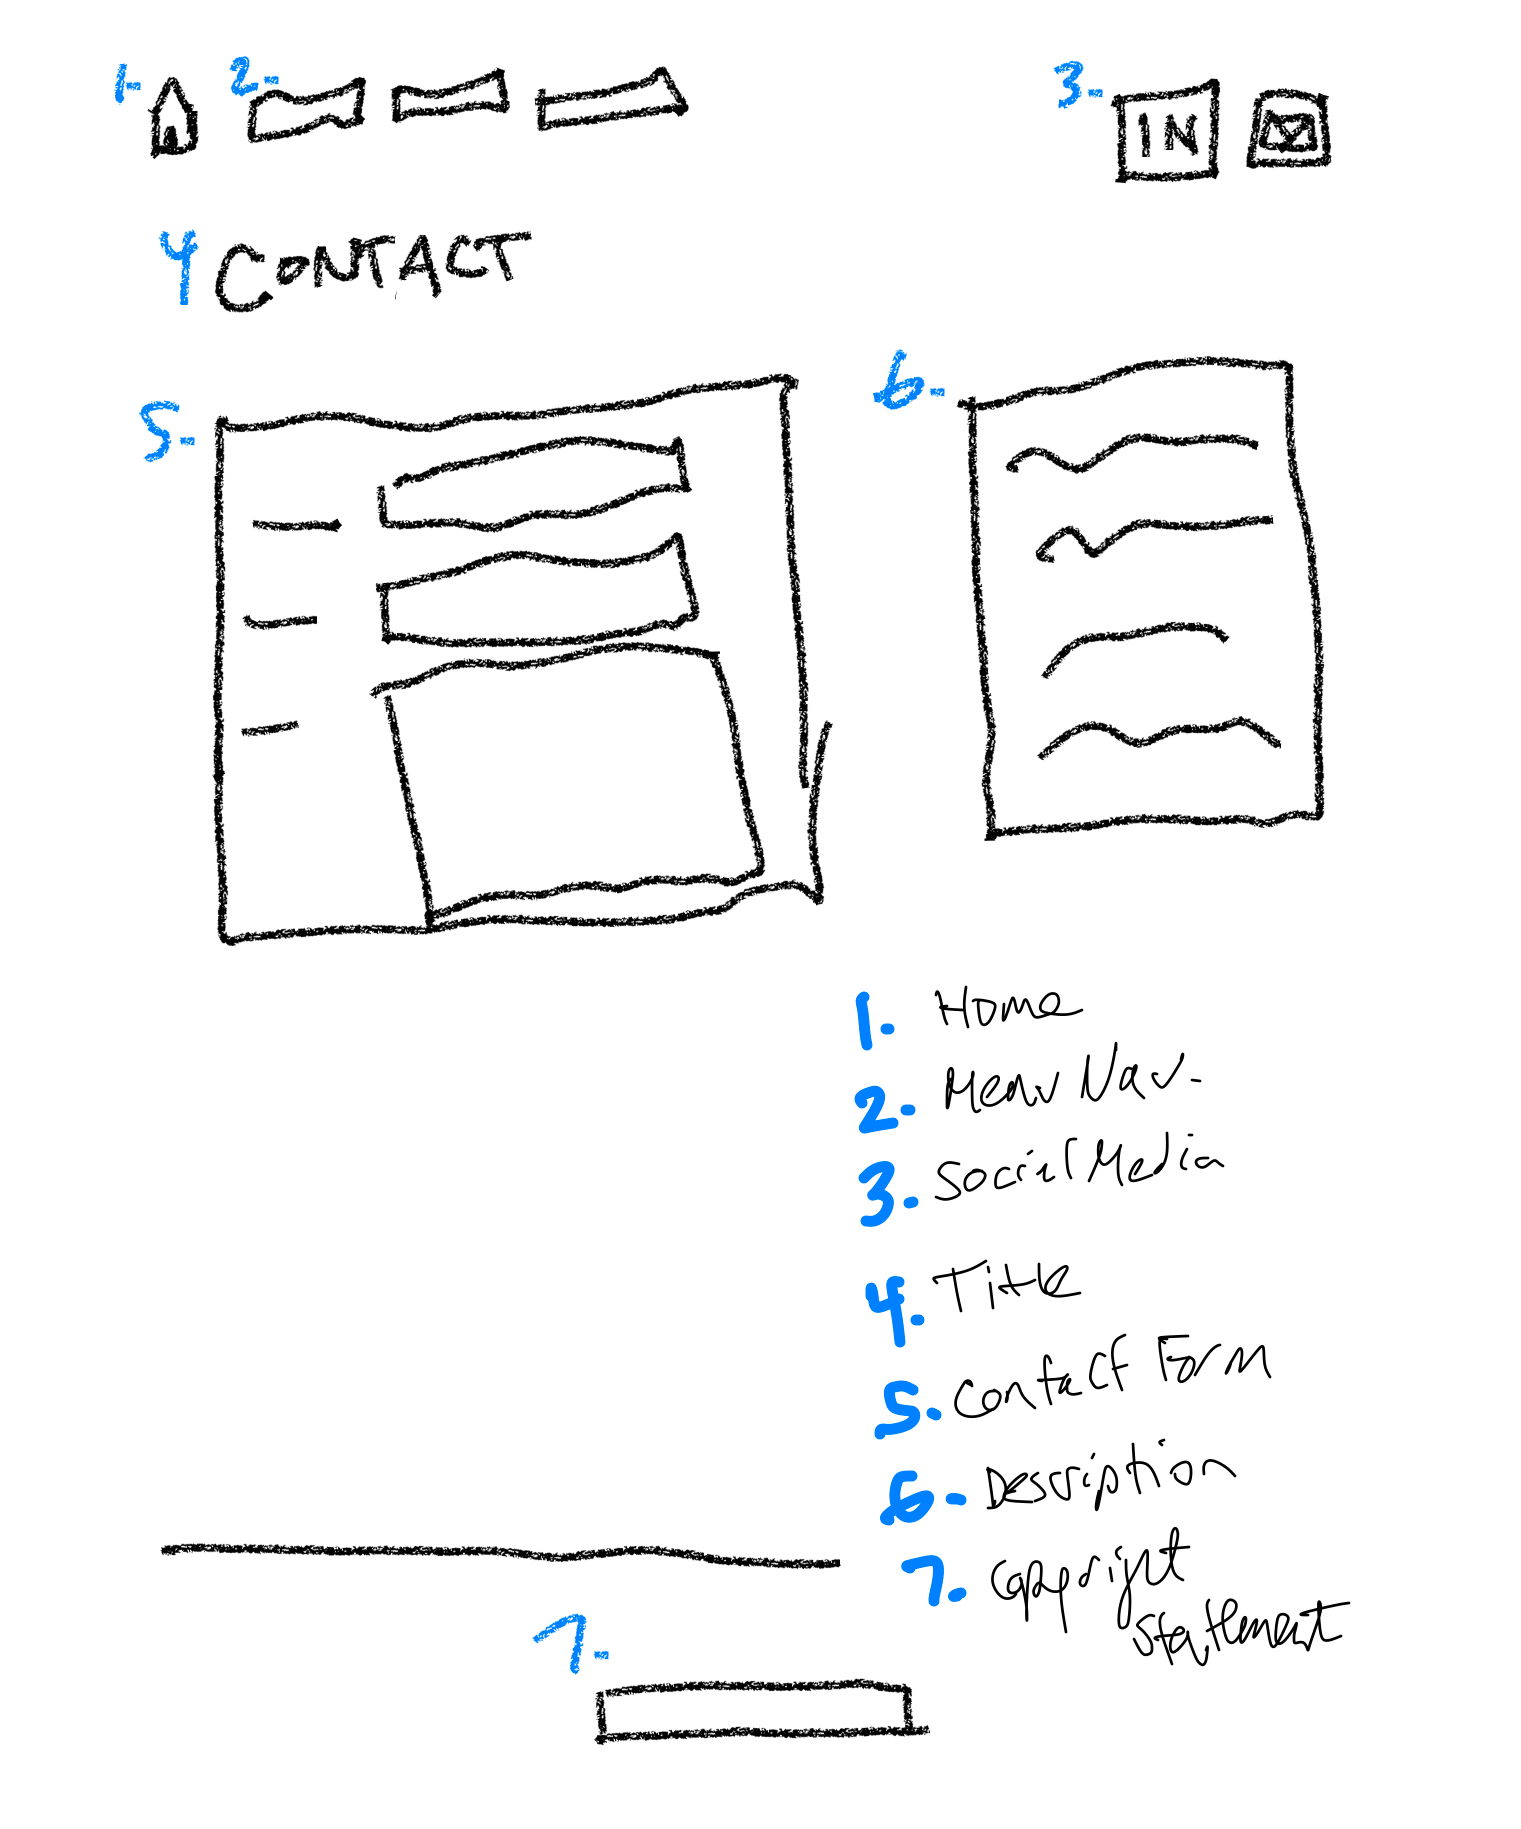 1-
2-
3-
IN
4 CONTACT
5-
6-
1. Home
2. Menu Nav.
3. Social Media
4. Title
5. Contact Form
6- Description
7. Copyright
Statement
7-